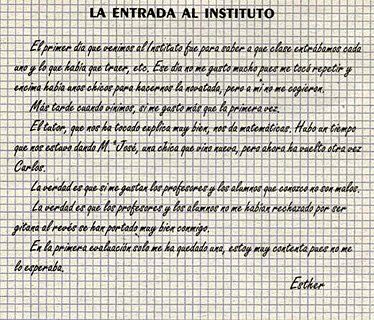 LA ENTRADA AL INSTITUTO
El primer día que venimos al Instituto fue para saber a que clase entrábamos cada
uno y lo que había que traer, etc. Ese día no me gusto mucho pues me tocó repetir y
encima había unos chicos para hacernos la novatada, pero a mi no me cogieron.
Más tarde cuando vinimos, si me gusto más que la primera vez.
El tutor, que nos ha tocado explica muy bien, nos da matemáticas. Hubo un tiempo
que nos estuvo dando M.ª José, una chica que vino nueva, pero ahora ha vuelto otra vez
Carlos.
La verdad es que si me gustan los profesores y los alumnos que conozco no son malos.
La verdad es que los profesores y los alumnos no me habían rechazado por ser
gitana al revés se han portado muy bien conmigo.
En la primera evaluación solo me ha quedado una, estoy muy contenta pues no me
lo esperaba.
Esther